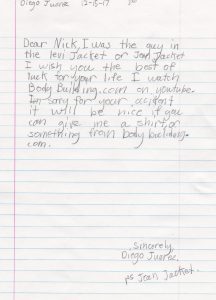 Diego Juarez 12-15-17
Dear Nick, I was the guy in
the levi Jacket or Jean Jacket
I wish you the best of
luck for your life I watch
Body Building.com on youtube.
Im sary for your acident
it will be nice if you
can give me a shirt or
something from body building.
com.
Sincerely
Diego Juarez
ps Jean Jacket.